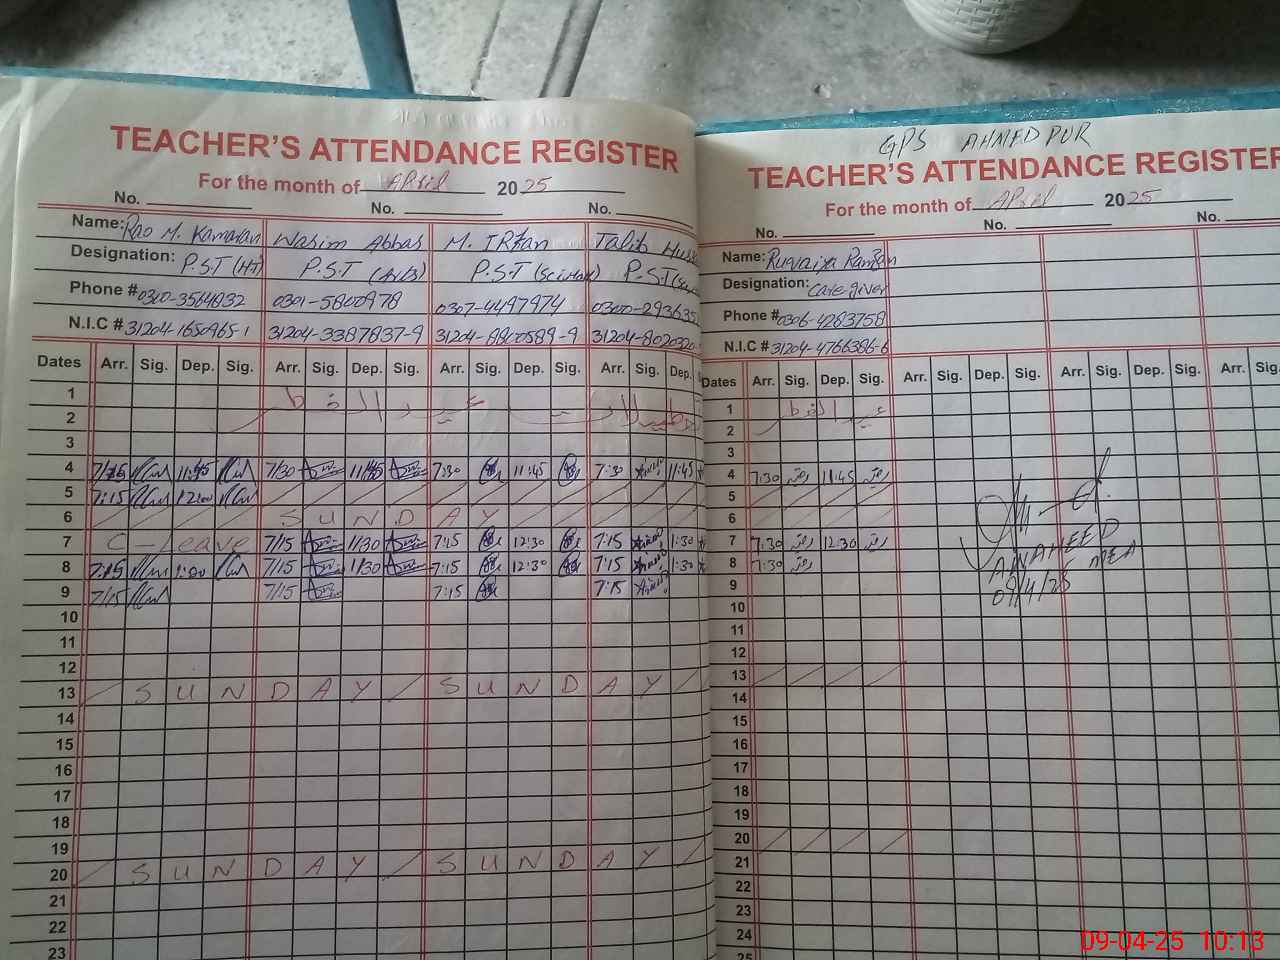 TEACHER'S ATTENDANCE REGISTER
For the month of April 2025
No. No. No.
Name: Rao M. Kamran Wasim Abbas M. IRfan Talib
Designation: P.S.T (HT) P.S.T P.S.T P.S.T
Phone # 0300-3564832 0301-5800978 0307-4497974 0300-293635
N.I.C # 31204-1650965-1 31204-3387837-9 31204-8800589-9 31204-8020320
Dates Arr. Sig. Dep. Sig. Arr. Sig. Dep. Sig. Arr. Sig. Dep. Sig. Arr. Sig. Dep.
1 عید الفطر
2
3
4 11:45 7/30 11/45 7:30 11:45 7:30 11:45
5 7:15 12:00
6 SUNDAY
7 C-Leave 7/15 11:30 7:15 12:30 7:15 1:30
8 7:15 1:00 7/15 11:30 7:15 12:30 7:15 1:30
9 7/15 7/15 7:15 7:15
10
11
12
13 SUNDAY SUNDAY
14
15
16
17
18
19
20 SUNDAY SUNDAY
21
22
23
GPS AHMEDPUR
TEACHER'S ATTENDANCE REGISTER
For the month of April 2025
No. No. No.
Name: Ruqaiya Ramzan
Designation: Care giver
Phone # 0306-4283758
N.I.C # 31204-4766386-6
Dates Arr. Sig. Dep. Sig. Arr. Sig. Dep. Sig. Arr. Sig. Dep. Sig. Arr. Sig.
1 عید الفطر
2
3
4 7:30 11:45
5
6
7 7:30 12:30
8 7:30
9
10
11
12
13
14
15
16
17
18
19
20
21
22
23
24
25
ANAHEED
MEA
09/4/25
09-04-25 10:13